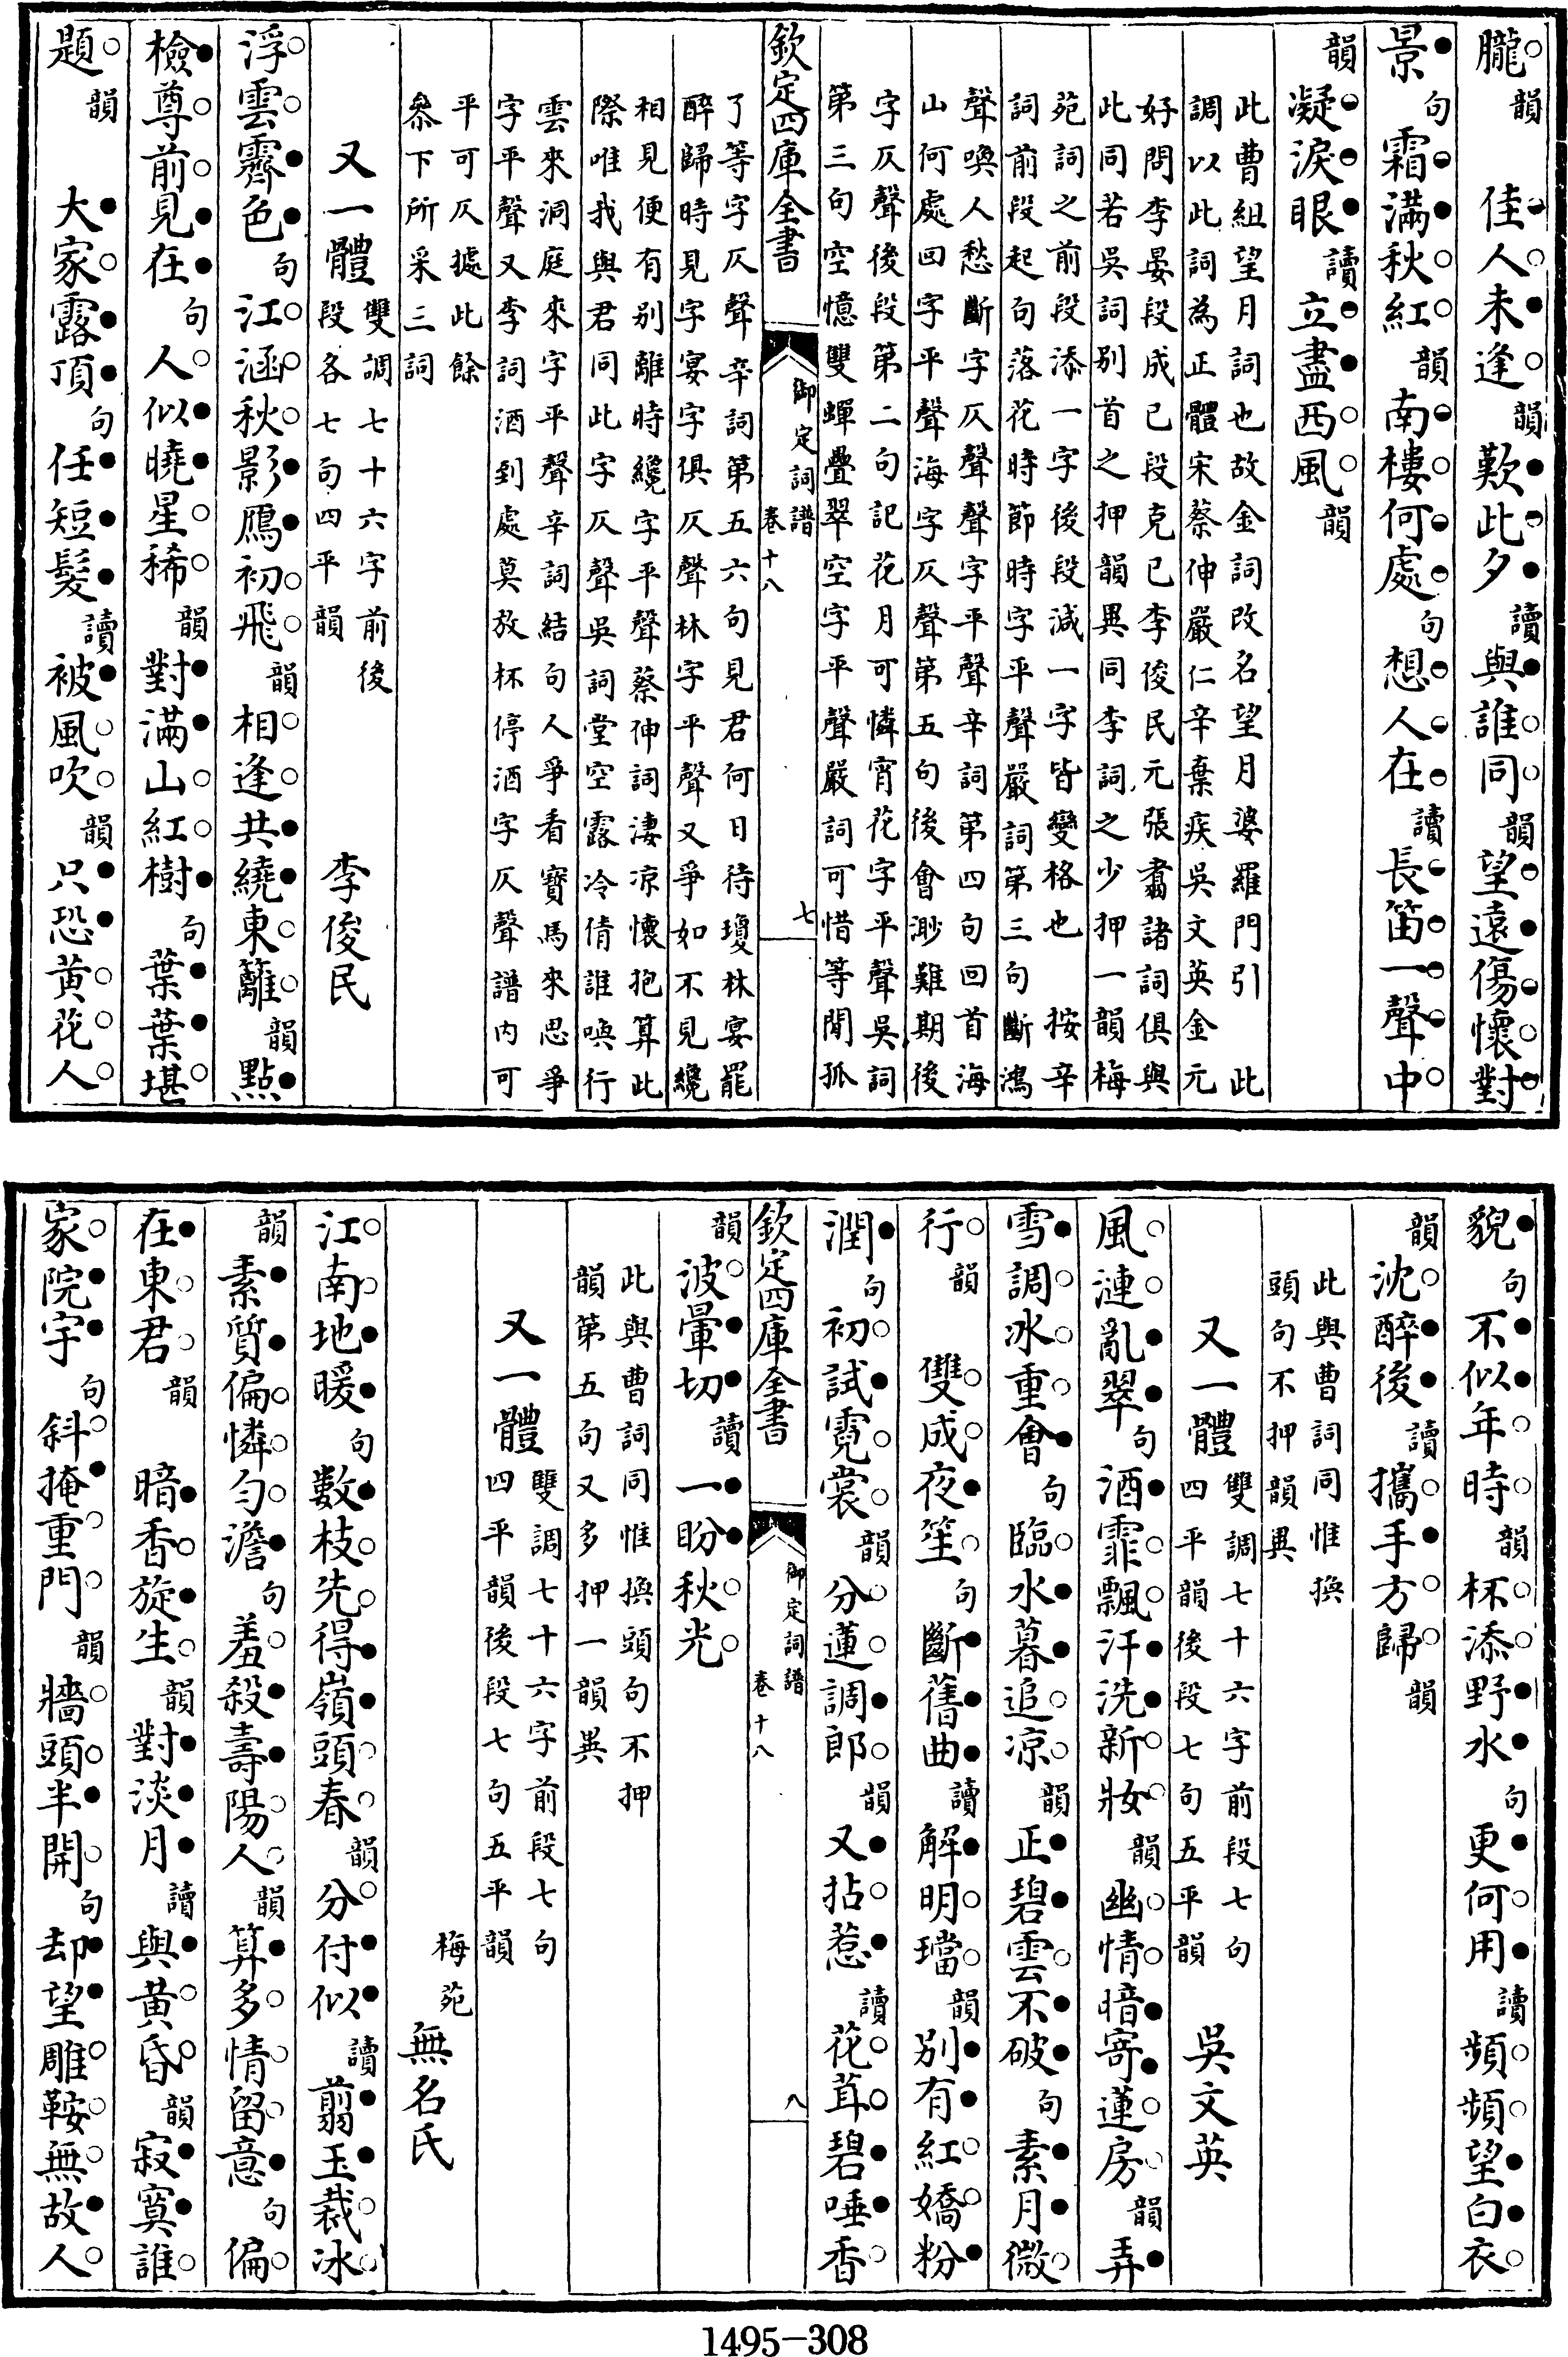 朧韻　佳人未逢韻歎此夕讀與誰同韻望遠傷懷對
景句霜滿秋紅韻南樓何處句想人在讀長笛一聲中
韻凝淚眼讀立盡西風韻
此曹組望月詞也故金詞改名望月婆羅門引　此
調以此詞為正體宋蔡伸嚴仁辛棄疾吳文英金元
好問李晏段成已段克已李俊民元張翥諸詞俱與
此同若吳詞别首之押韻異同李詞之少押一韻梅
苑詞之前段添一字後段減一字皆變格也　按辛
詞前段起句落花時節時字平聲嚴詞第三句斷鴻
聲喚人愁斷字仄聲聲字平聲辛詞第四句回首海
山何處回字平聲海字仄聲第五句後會渺難期後
字仄聲後段第二句記花月可憐宵花字平聲吳詞
第三句空憶雙蟬疊翠空字平聲嚴詞可惜等閒孤
欽定四庫全書　御定詞譜　卷十八　七
了等字仄聲辛詞第五六句見君何日待瓊林宴罷
醉歸時見字宴字俱仄聲林字平聲又爭如不見纔
相見便有别離時纔字平聲蔡伸詞淒凉懷抱算此
際唯我與君同此字仄聲吳詞堂空露冷倩誰喚行
雲來洞庭來字平聲辛詞結句人爭看寳馬來思爭
字平聲又李詞酒到處莫放杯停酒字仄聲譜内可
平可仄據此餘
叅下所采三詞
又一體　雙調七十六字前後段各七句四平韻　李俊民
浮雲霽色句江涵秋影鴈初飛韻相逢共繞東籬韻點
檢尊前見在句人似曉星稀韻對滿山紅樹句葉葉堪
題韻　大家露頂句任短髮讀被風吹韻只恐黄花人
貌句不似年時韻杯添野水句更何用讀頻頻望白衣
韻沈醉後讀攜手方歸韻
此與曹詞同惟換
頭句不押韻異
又一體　雙調七十六字前段七句四平韻後段七句五平韻　吳文英
風漣亂翠句酒霏飄汗洗新妝韻幽情暗寄蓮房韻弄
雪調冰重會句臨水暮追凉韻正碧雲不破句素月微
行韻　雙成夜笙句斷舊曲讀解明璫韻别有紅嬌粉
潤句初試霓裳韻分蓮調郎韻又拈惹讀花茸碧唾香
欽定四庫全書　御定詞譜　卷十八　八
韻波暈切讀一盼秋光韻
此與曹詞同惟換頭句不押
韻第五句又多押一韻異
又一體　雙調七十六字前段七句四平韻後段七句五平韻　梅苑無名氏
江南地暖句數枝先得嶺頭春韻分付似讀翦玉裁冰
韻素質偏憐勻澹句羞殺壽陽人韻算多情留意句偏
在東君韻　暗香旋生韻對淡月讀與黄昏韻寂寞誰
家院宇句斜掩重門韻牆頭半開句却望雕鞍無故人
1495-308